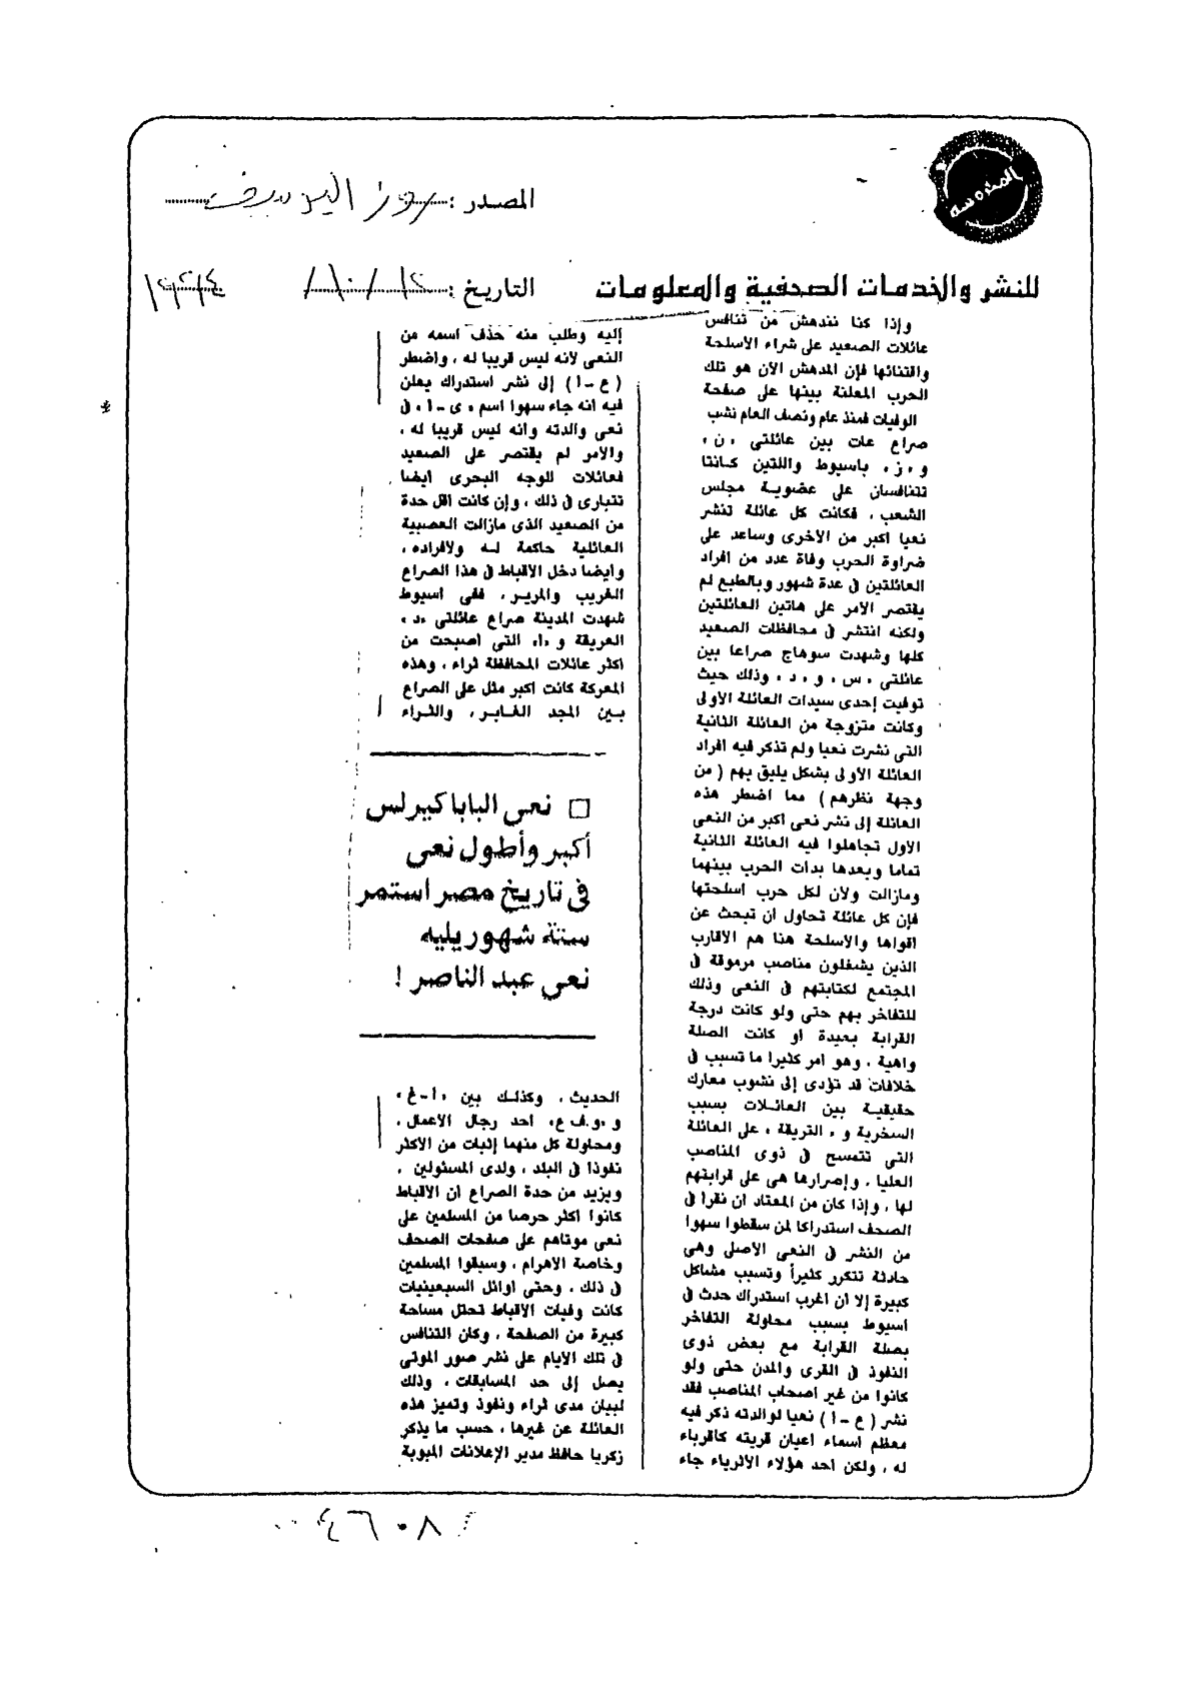 المحروسة
المصدر : روز اليوسف
للنشر والخدمات الصحفية والمعلومات
التاريخ :
وإذا كنا نندهش من تنافس
عائلات الصعيد على شراء الأسلحة
واقتنائها فإن المدهش الآن هو تلك
الحرب المعلنة بينها على صفحة
الوفيات فمنذ عام ونصف العام نشب
صراع عات بين عائلتى «ن»
و«ز» باسيوط واللتين كانتا
تتنافسان على عضوية مجلس
الشعب ، فكانت كل عائلة تنشر
نعيا اكبر من الأخرى وساعد على
ضراوة الحرب وفاة عدد من افراد
العائلتين فى عدة شهور وبالطبع لم
يقتصر الأمر على هاتين العائلتين
ولكنه انتشر فى محافظات الصعيد
كلها وشهدت سوهاج صراعا بين
عائلتى «س» و«د» وذلك حيث
توفيت إحدى سيدات العائلة الأولى
وكانت متزوجة من العائلة الثانية
التى نشرت نعيا ولم تذكر فيه افراد
العائلة الأولى بشكل يليق بهم ( من
وجهة نظرهم ) مما اضطر هذه
العائلة إلى نشر نعى اكبر من النعى
الأول تجاهلوا فيه العائلة الثانية
تماما وبعدها بدات الحرب بينهما
ومازالت ولأن لكل حرب اسلحتها
فإن كل عائلة تحاول ان تبحث عن
اقواها والأسلحة هنا هم الأقارب
الذين يشغلون مناصب مرموقة فى
المجتمع لكتابتهم فى النعى وذلك
للتفاخر بهم حتى ولو كانت درجة
القرابة بعيدة او كانت الصلة
واهية ، وهو امر كثيرا ما تسبب فى
خلافات قد تؤدى إلى نشوب معارك
حقيقية بين العائلات بسبب
السخرية و« التريقة » على العائلة
التى تتمسح فى ذوى المناصب
العليا ، وإصرارها هى على قرابتهم
لها ، وإذا كان من المعتاد ان نقرا فى
الصحف استدراكا لمن سقطوا سهوا
من النشر فى النعى الأصلى وهى
حادثة تتكرر كثيراً وتسبب مشاكل
كبيرة إلا ان اغرب استدراك حدث فى
اسيوط بسبب محاولة التفاخر
بصلة القرابة مع بعض ذوى
النفوذ فى القرى والمدن حتى ولو
كانوا من غير اصحاب المناصب فقد
نشر ( ع - ا ) نعيا لوالدته ذكر فيه
معظم اسماء اعيان قريته كاقرباء
له ، ولكن احد هؤلاء الأثرياء جاء
إليه وطلب منه حذف اسمه من
النعى لأنه ليس قريبا له ، واضطر
( ع - ا ) إلى نشر استدراك يعلن
فيه انه جاء سهوا اسم « ى - ا » فى
نعى والدته وانه ليس قريبا له .
والأمر لم يقتصر على الصعيد
فعائلات الوجه البحرى ايضا
تتبارى فى ذلك ، وإن كانت اقل حدة
من الصعيد الذى مازالت العصبية
العائلية حاكمة له ولأفراده ،
وايضا دخل الأقباط فى هذا الصراع
الغريب والمرير ، ففى اسيوط
شهدت المدينة صراع عائلتى «د»
العريقة و«ا» التى اصبحت من
اكثر عائلات المحافظة ثراء ، وهذه
المعركة كانت اكبر مثل على الصراع
بين المجد الغابر ، والثراء
□ نعى البابا كيرلس
أكبر وأطول نعى
فى تاريخ مصر استمر
ستة شهور يليه
نعى عبد الناصر !
الحديث ، وكذلك بين «أ - غ»
و«و.ف ع» احد رجال الأعمال ،
ومحاولة كل منهما إثبات من الأكثر
نفوذا فى البلد ، ولدى المسئولين .
ويزيد من حدة الصراع ان الأقباط
كانوا اكثر حرصا من المسلمين على
نعى موتاهم على صفحات الصحف
وخاصة الأهرام ، وسبقوا المسلمين
فى ذلك ، وحتى اوائل السبعينيات
كانت وفيات الأقباط تحتل مساحة
كبيرة من الصفحة ، وكان التنافس
فى تلك الأيام على نشر صور الموتى
يصل إلى حد المسابقات ، وذلك
لبيان مدى ثراء ونفوذ وتميز هذه
العائلة عن غيرها ، حسب ما يذكر
زكريا حافظ مدير الإعلانات المبوبة